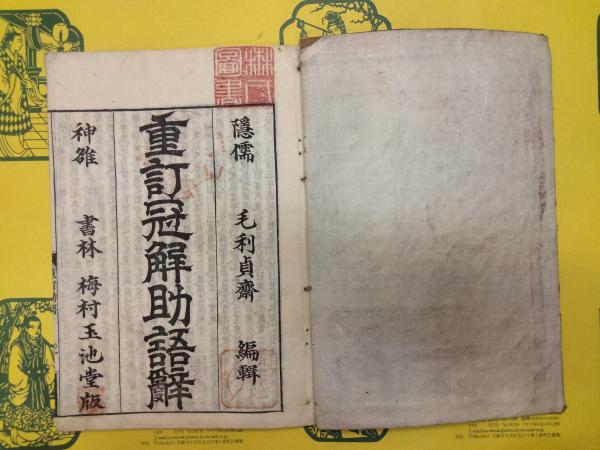 隱儒 毛利貞齋 編輯
重訂冠解助語辭
神雒 書林 梅村玉池堂版